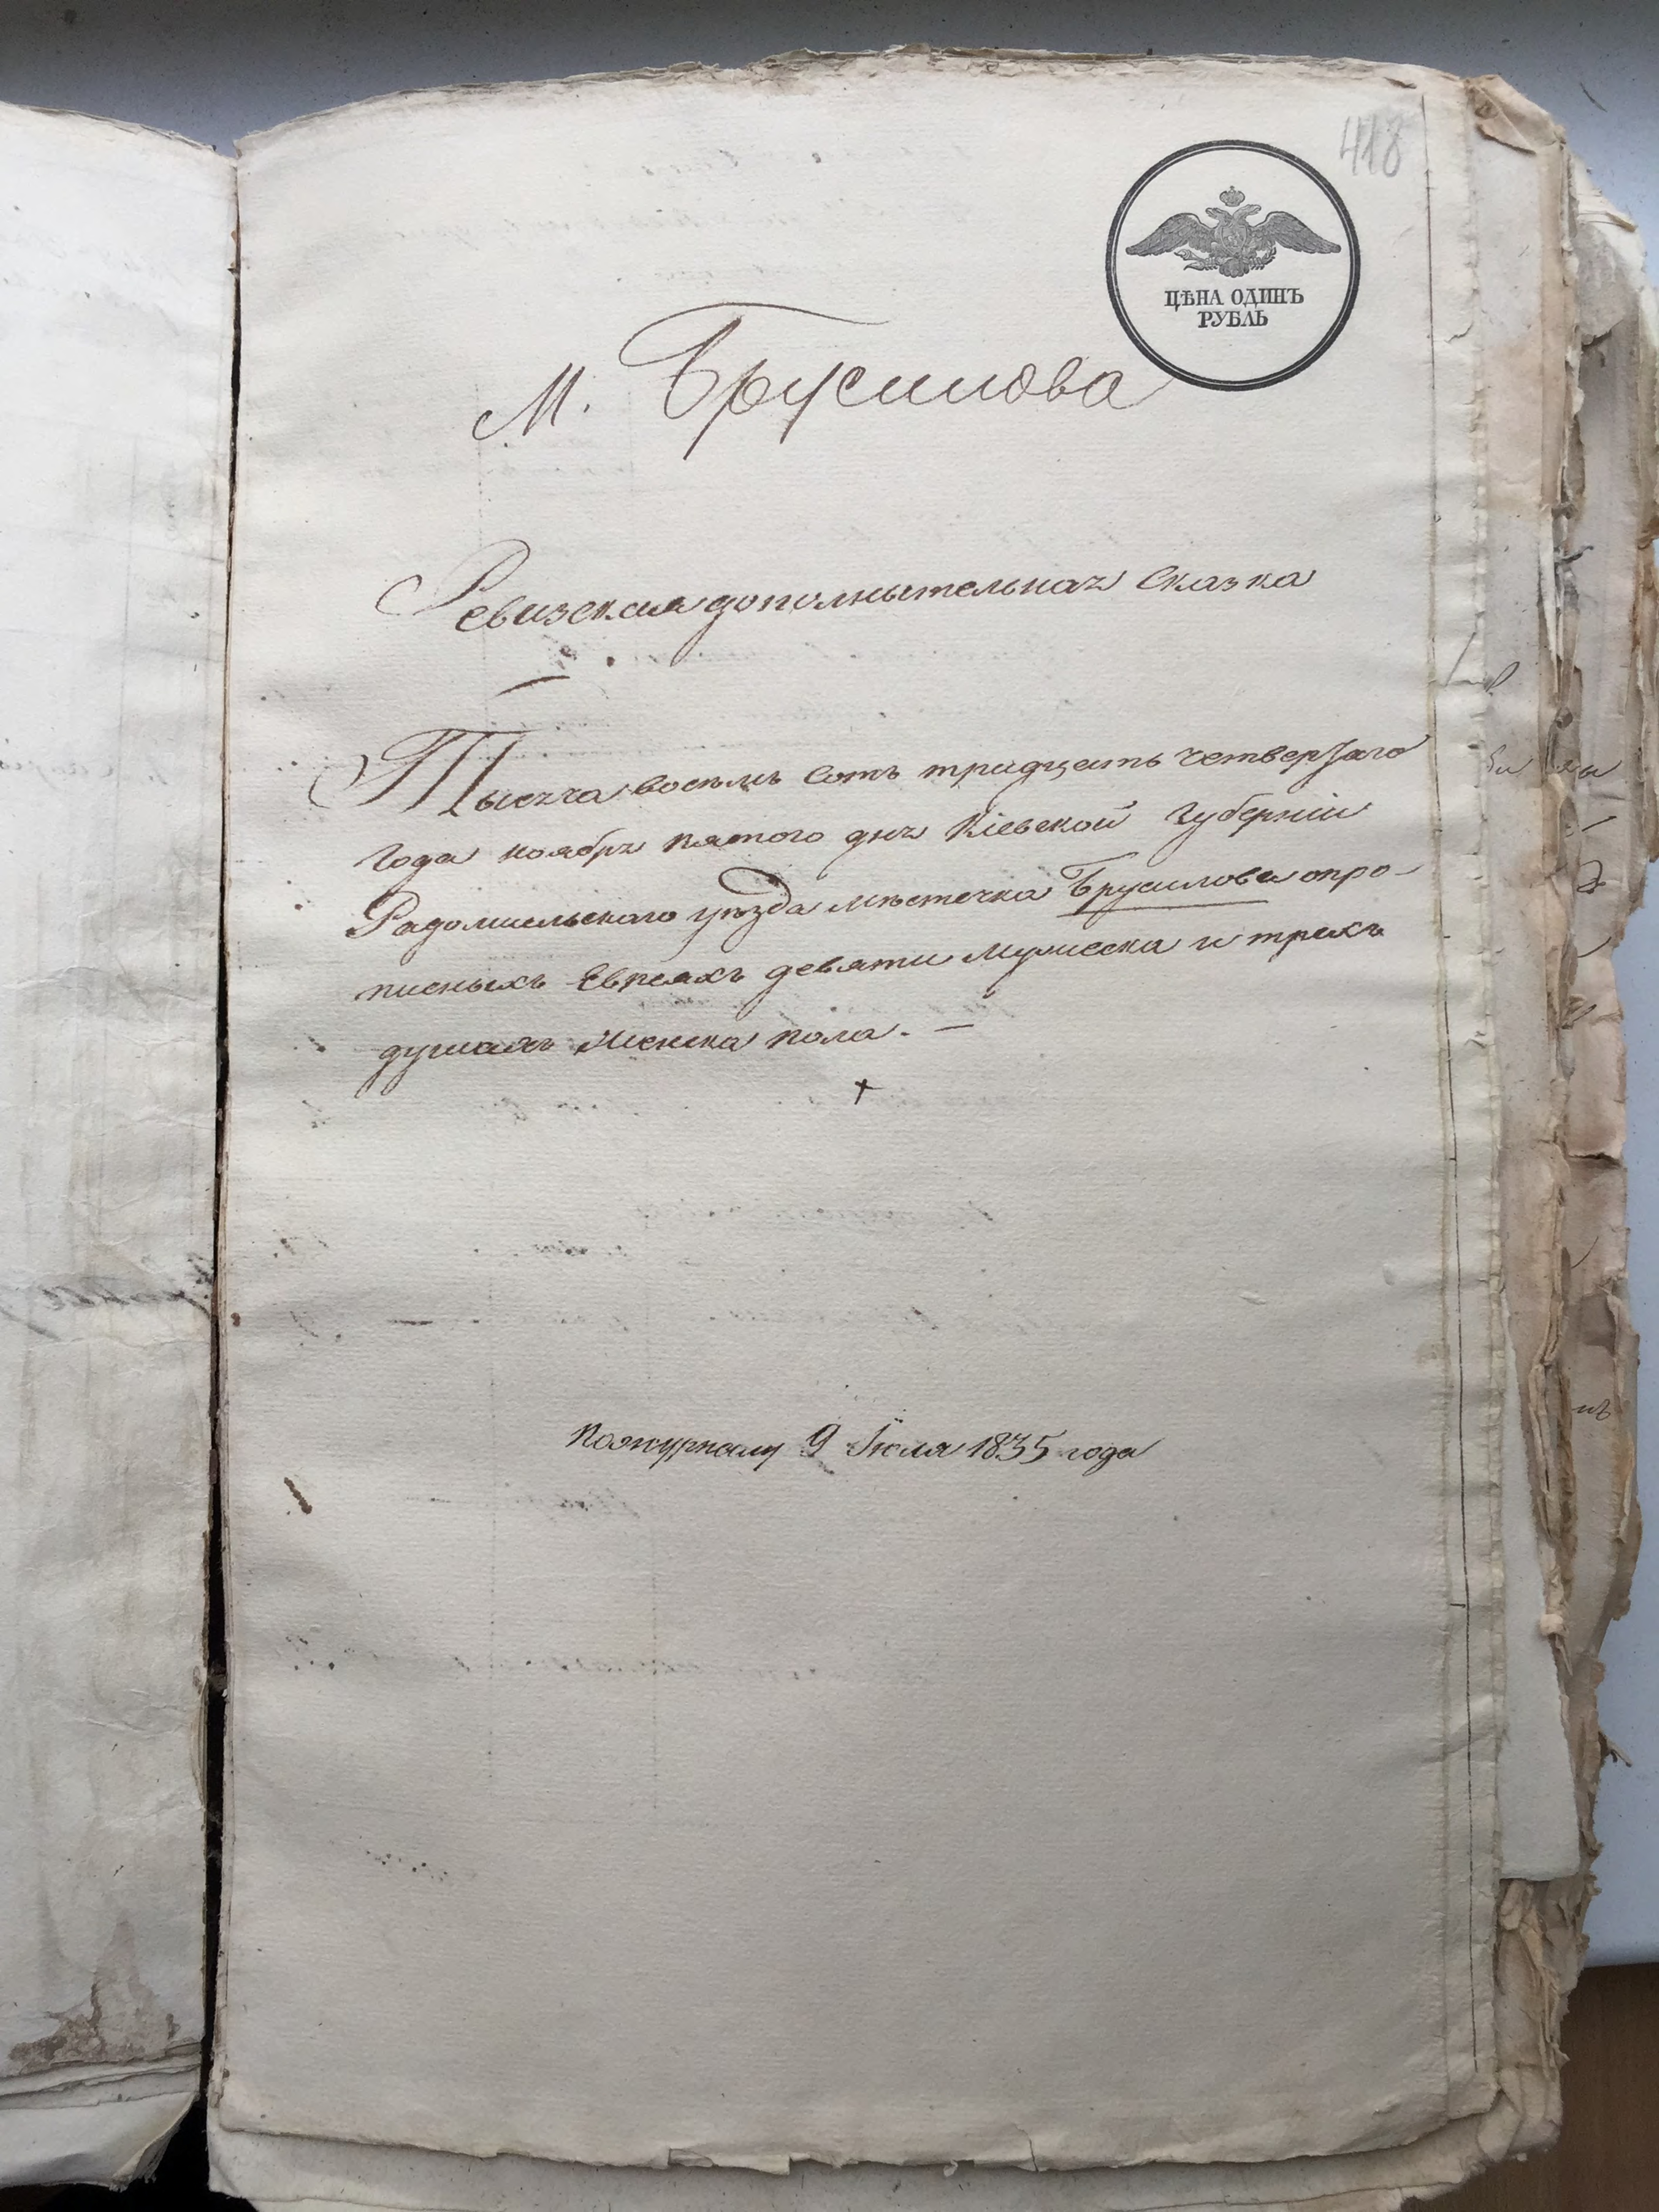 418
ЦѢНА ОДИНЪ
РУБЛЬ
М. Брусилова
Ревизская дополнытельная Сказка
Тысяча восемь Сотъ тридцать четвертаго
Года ноября пятого дня Кіевской Губерніи
Радомысльскаго уѣзда мѣстечка Брусилова о про-
писныхъ Евреяхъ девяти мужеска и трехъ
душахъ женска пола. —
По журналу 9 Іюля 1835 года